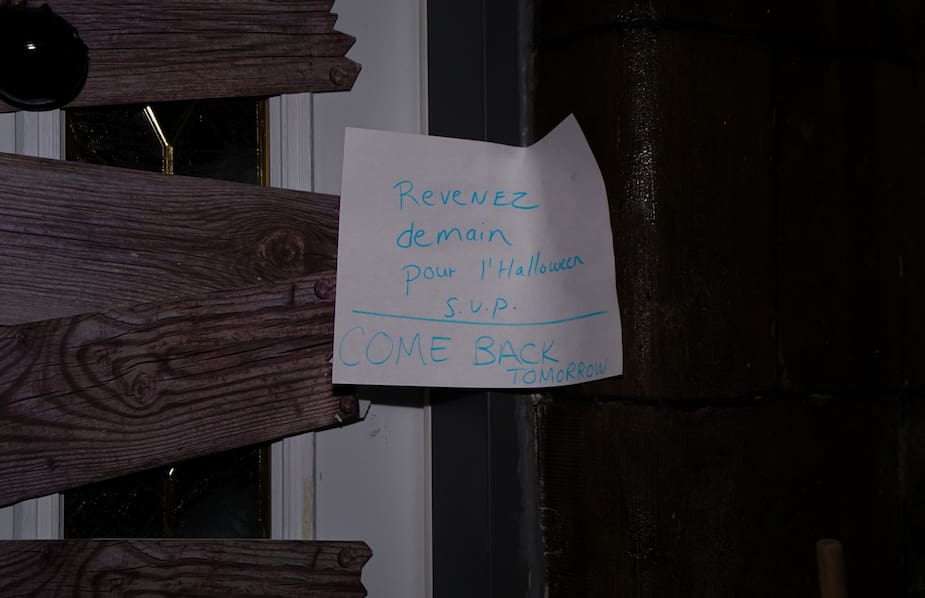 ReveNEZ
demain
pour l'Halloween
s.v.p.
COME BACK
TOMORROW